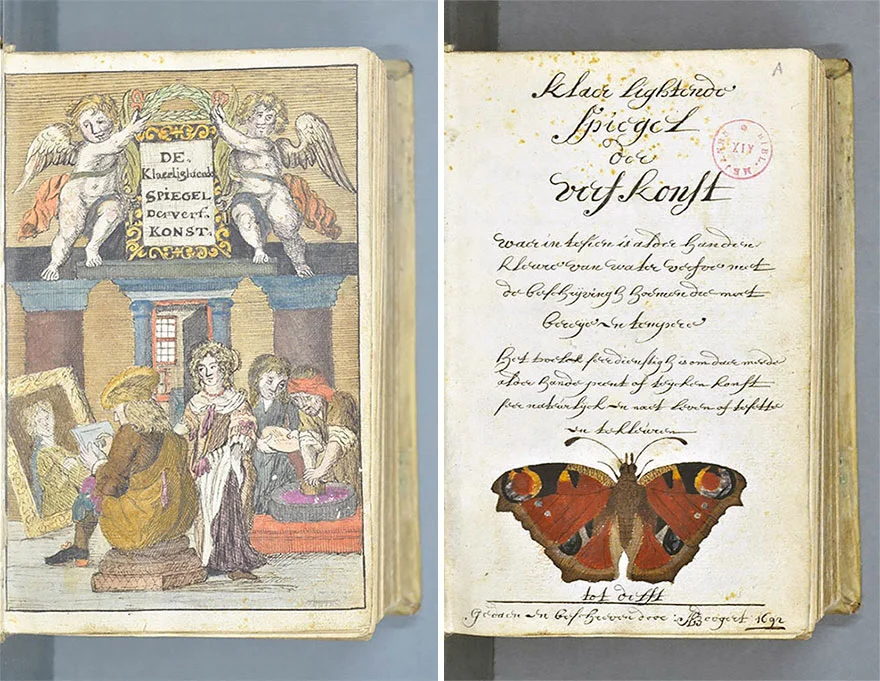 DE.
Klaerlightende
SPIEGEL
Der verf.
KONST.
A
klaer lightende
Spiegel
der
verfkonst
BIBL. MEJANES
AIX
waer in te sien is alder handen
kleure van water verfve met
de beschrijvingh hoe men die moet
bereye en tempere
Het welck seer dienstigh is om daer mede
alder hande prent of teycken konst
seer natuerlyck en naer leven af te sette
en te kleuren
tot delft
Gedaen en beschreven door: ABoogert 1692